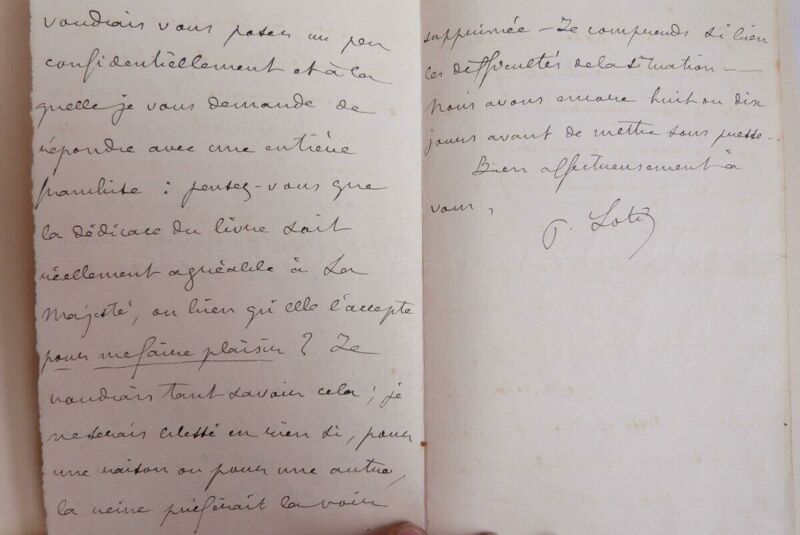 voudrais vous poser un peu
confidentiellement et à la
quelle je vous demande de
répondre avec une entière
franchise : pensez-vous que
la dédicace du livre soit
réellement agréable à Sa
Majesté, ou bien qu'elle l'accepte
pour me faire plaisir ? Je
voudrais tant savoir cela ; je
ne serais blessé en rien si, pour
une raison ou pour une autre,
la reine préférait la voir
supprimée – Je comprends si bien
les difficultés de la situation –
Nous avons encore huit ou dix
jours avant de mettre sous presse –
Bien affectueusement à
vous,
P. Loti